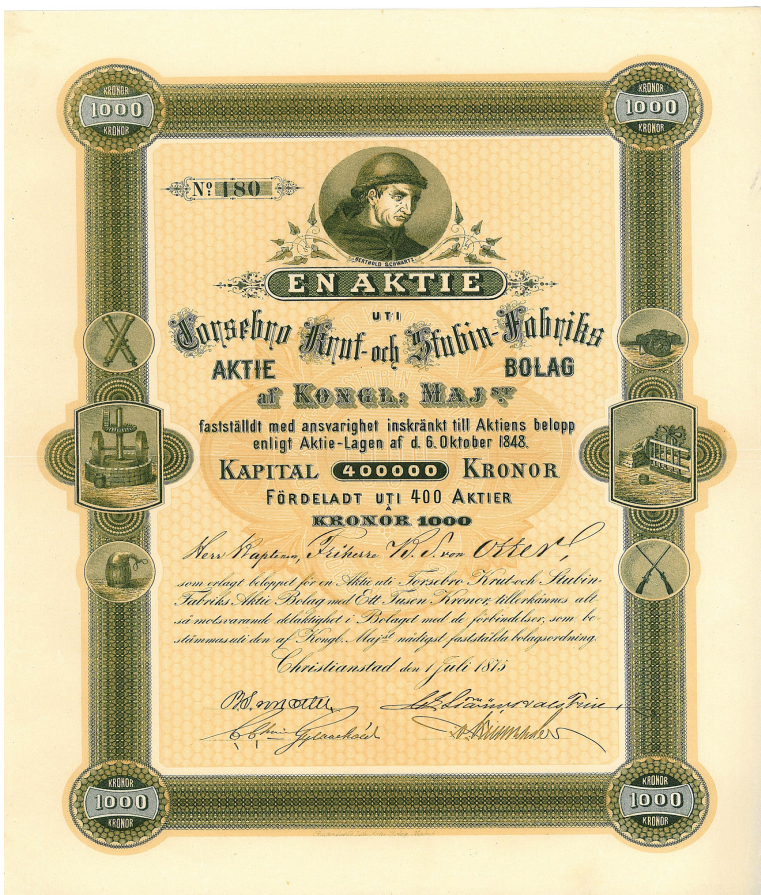 KRONOR
1000
KRONOR
KRONOR
1000
KRONOR
No 180
BERTHOLD SCHWARTZ
EN AKTIE
UTI
Torsebro Krut- och Stubin-Fabriks
AKTIE BOLAG
af KONGL: MAJ:t
fastställdt med ansvarighet inskränkt till Aktiens belopp
enligt Aktie-Lagen af d. 6. Oktober 1848.
KAPITAL 400000 KRONOR
FÖRDELADT UTI 400 AKTIER
A
KRONOR 1000
Herr Kaptenen, Friherre B. S. von Otter,
som erlagt beloppet för en Aktie uti Torsebro Krut-och Stubin-
Fabriks Aktie Bolag med Ett Tusen Kronor, tillerkännes allt
så motsvarande delaktighet i Bolaget med de förbindelser, som be-
stämmas uti den af Kongl. Maj:st nådigst fastställda bolagsordning.
Christianstad den 1 Juli 1875
KRONOR
1000
KRONOR
KRONOR
1000
KRONOR